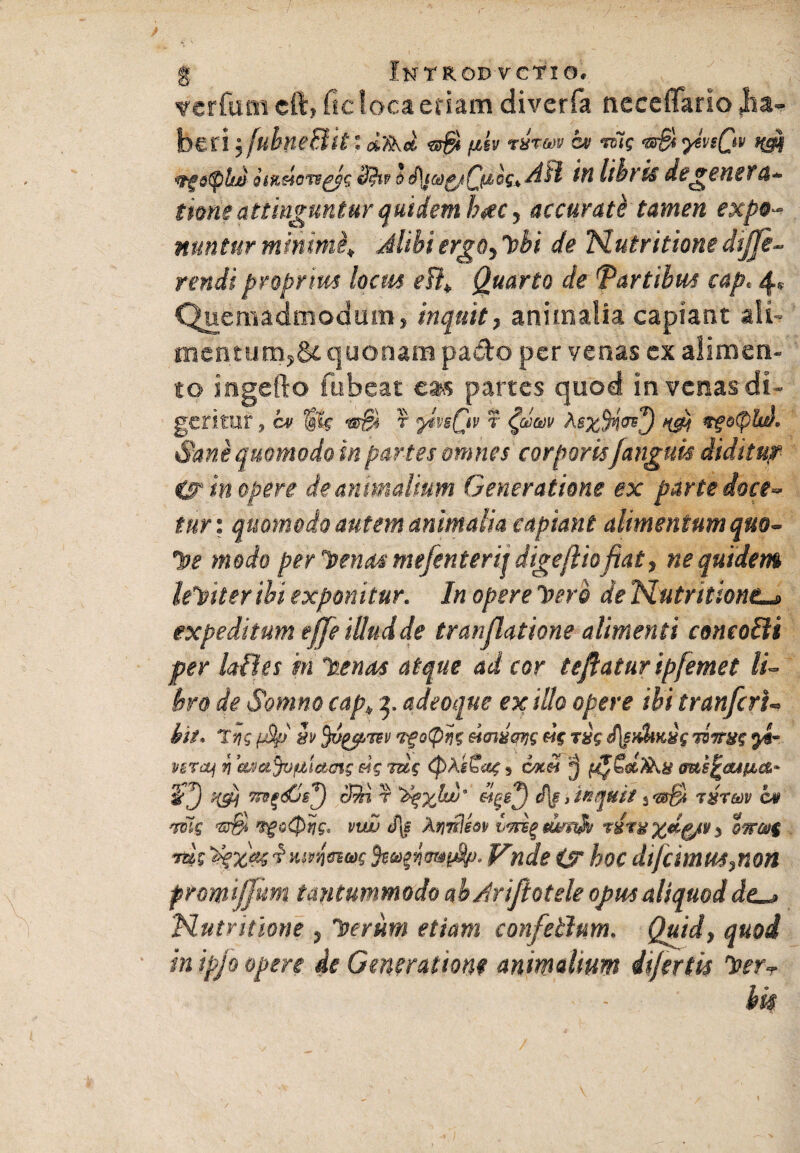 8 INTRODVCTIO.
versum est, sic loca etiam diversa necessario ha-
beri; subnectit: ἀλλὰ περὶ μὲν τούτων ἐν τοῖς περὶ γένεσιν καὶ
τροφὴν οἰκειότερός ἐστιν ὁ διωρισμός. At in libris de genera-
tione attinguntur quidem hæc, accuratè tamen expo-
nuntur minimè. Alibi ergo, ubi de Nutritione disse-
rendi proprius locus est. Quarto de Partibus cap. 4.
Quemadmodum, inquit, animalia capiant ali-
mentum, & quonam pacto per venas ex alimen-
to ingesto subeat eas partes quod in venas di-
geritur, ἐν τοῖς περὶ τ̀ γένεσιν τ̀ ζώων λεχθήσεται καὶ τροφήν.
Sanè quomodo in partes omnes corporis sanguis diditur
& in opere de animalium Generatione ex parte doce-
tur: quomodo autem animalia capiant alimentum quo-
ve modo per venas mesenterij digestio fiat, ne quidem
leviter ibi exponitur. In opere verò de Nutritione
expeditum esse illud de translatione alimenti concocti
per lactes in venas atque ad cor testatur ipsemet li-
bro de Somno cap. 3. adeoque ex illo opere ibi transcri-
bit. Τῆς μὲν οὖν θύραθεν τροφῆς εἰσιούσης εἰς τοὺς δεκτικοὺς τόπους γί-
νεται ἡ ἀναθυμίασις εἰς τὰς φλέβας, ἐκεῖ δὲ μεταβάλλουσα
καὶ πορεύεται ἐπὶ τ̀ ἀρχήν· εἴρηται δὲ, inquit, περὶ τούτων ἐν
τοῖς περὶ τροφῆς. νυῦ δὲ ληπτέον ὑπὲρ αὐτῶν τούτου χάριν, ὅπως
τὰς ἀρχὰς τ̀ κινήσεως θεωρήσωμεν. Unde & hoc discimus, non
promissum tantummodo ab Aristotele opus aliquod de
Nutritione, verùm etiam confectum. Quid, quod
in ipso opere de Generatione animalium disertis ver-
bis